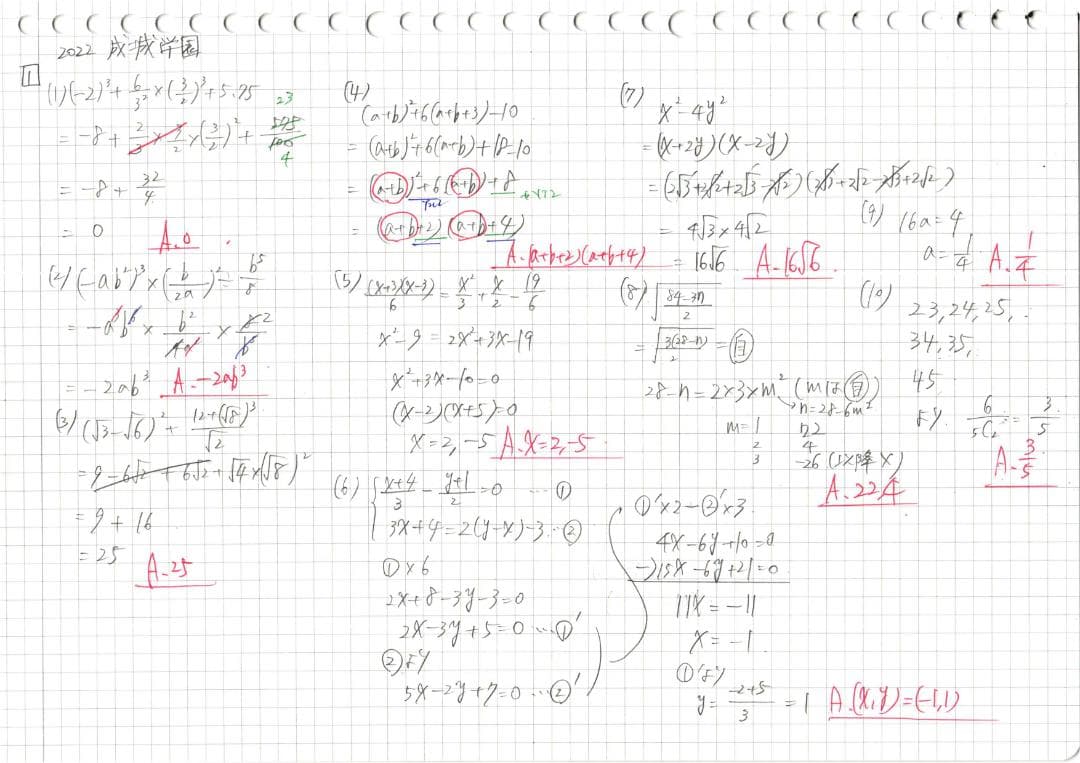 2022 成城学園
1
(1) (-2)³ + 6/3² × (3/2)³ + 5.75
= -8 + 2/3 × 3/2 × (3/2)² + 575/100 23/4
= -8 + 32/4
= 0
A. 0
(2) (-ab²)³ × (b/2a)² ÷ b⁵/8
= -a³b⁶ × b²/4a² × 8/b⁵
= -2ab³ A. -2ab³
(3) (√3-√6)² + 12+(√8)³/√2
= 9 - 6√2 + 6√2 + √4×(√8)²
= 9 + 16
= 25
A. 25
(4)
(a+b)²+6(a+b+3)-10
= (a+b)²+6(a+b)+18-10
= (a+b)²+6(a+b)+8
= (a+b+2)(a+b+4)
A. (a+b+2)(a+b+4)
(5) (x+3)(x-3)/6 = x²/3 + x/2 - 19/6
x²-9 = 2x²+3x-19
x²+3x-10=0
(x-2)(x+5)=0
x=2,-5 A. x=2,-5
(6) { x+4/3 - y+1/2 = 0 … ①
3x+4=2(y-x)-3 … ②
①×6
2x+8-3y-3=0
2x-3y+5=0 … ①'
②より
5x-2y+7=0 … ②'
①'×2-②'×3
4x-6y+10=0
-)15x-6y+21=0
11x=-11
x=-1
①'より
y= -2+5/3 = 1 A. (x,y)=(-1,1)
(7)
x²-4y²
=(x+2y)(x-2y)
=(2√3+2√2+2√3-2√2)(2√3+2√2-2√3+2√2)
= 4√3×4√2
= 16√6 A. 16√6
(8) √84-3n/2
= √3(28-n)/2 = 自
28-n=2×3×m² (mは自)
n=28-6m²
m=1 22
2 4
3 -26 (以降×)
A. 22,4
(9) 16a=4
a=1/4 A. 1/4
(10)
23,24,25,
34,35,
45
より 6/₅C₂ = 3/5
A. 3/5